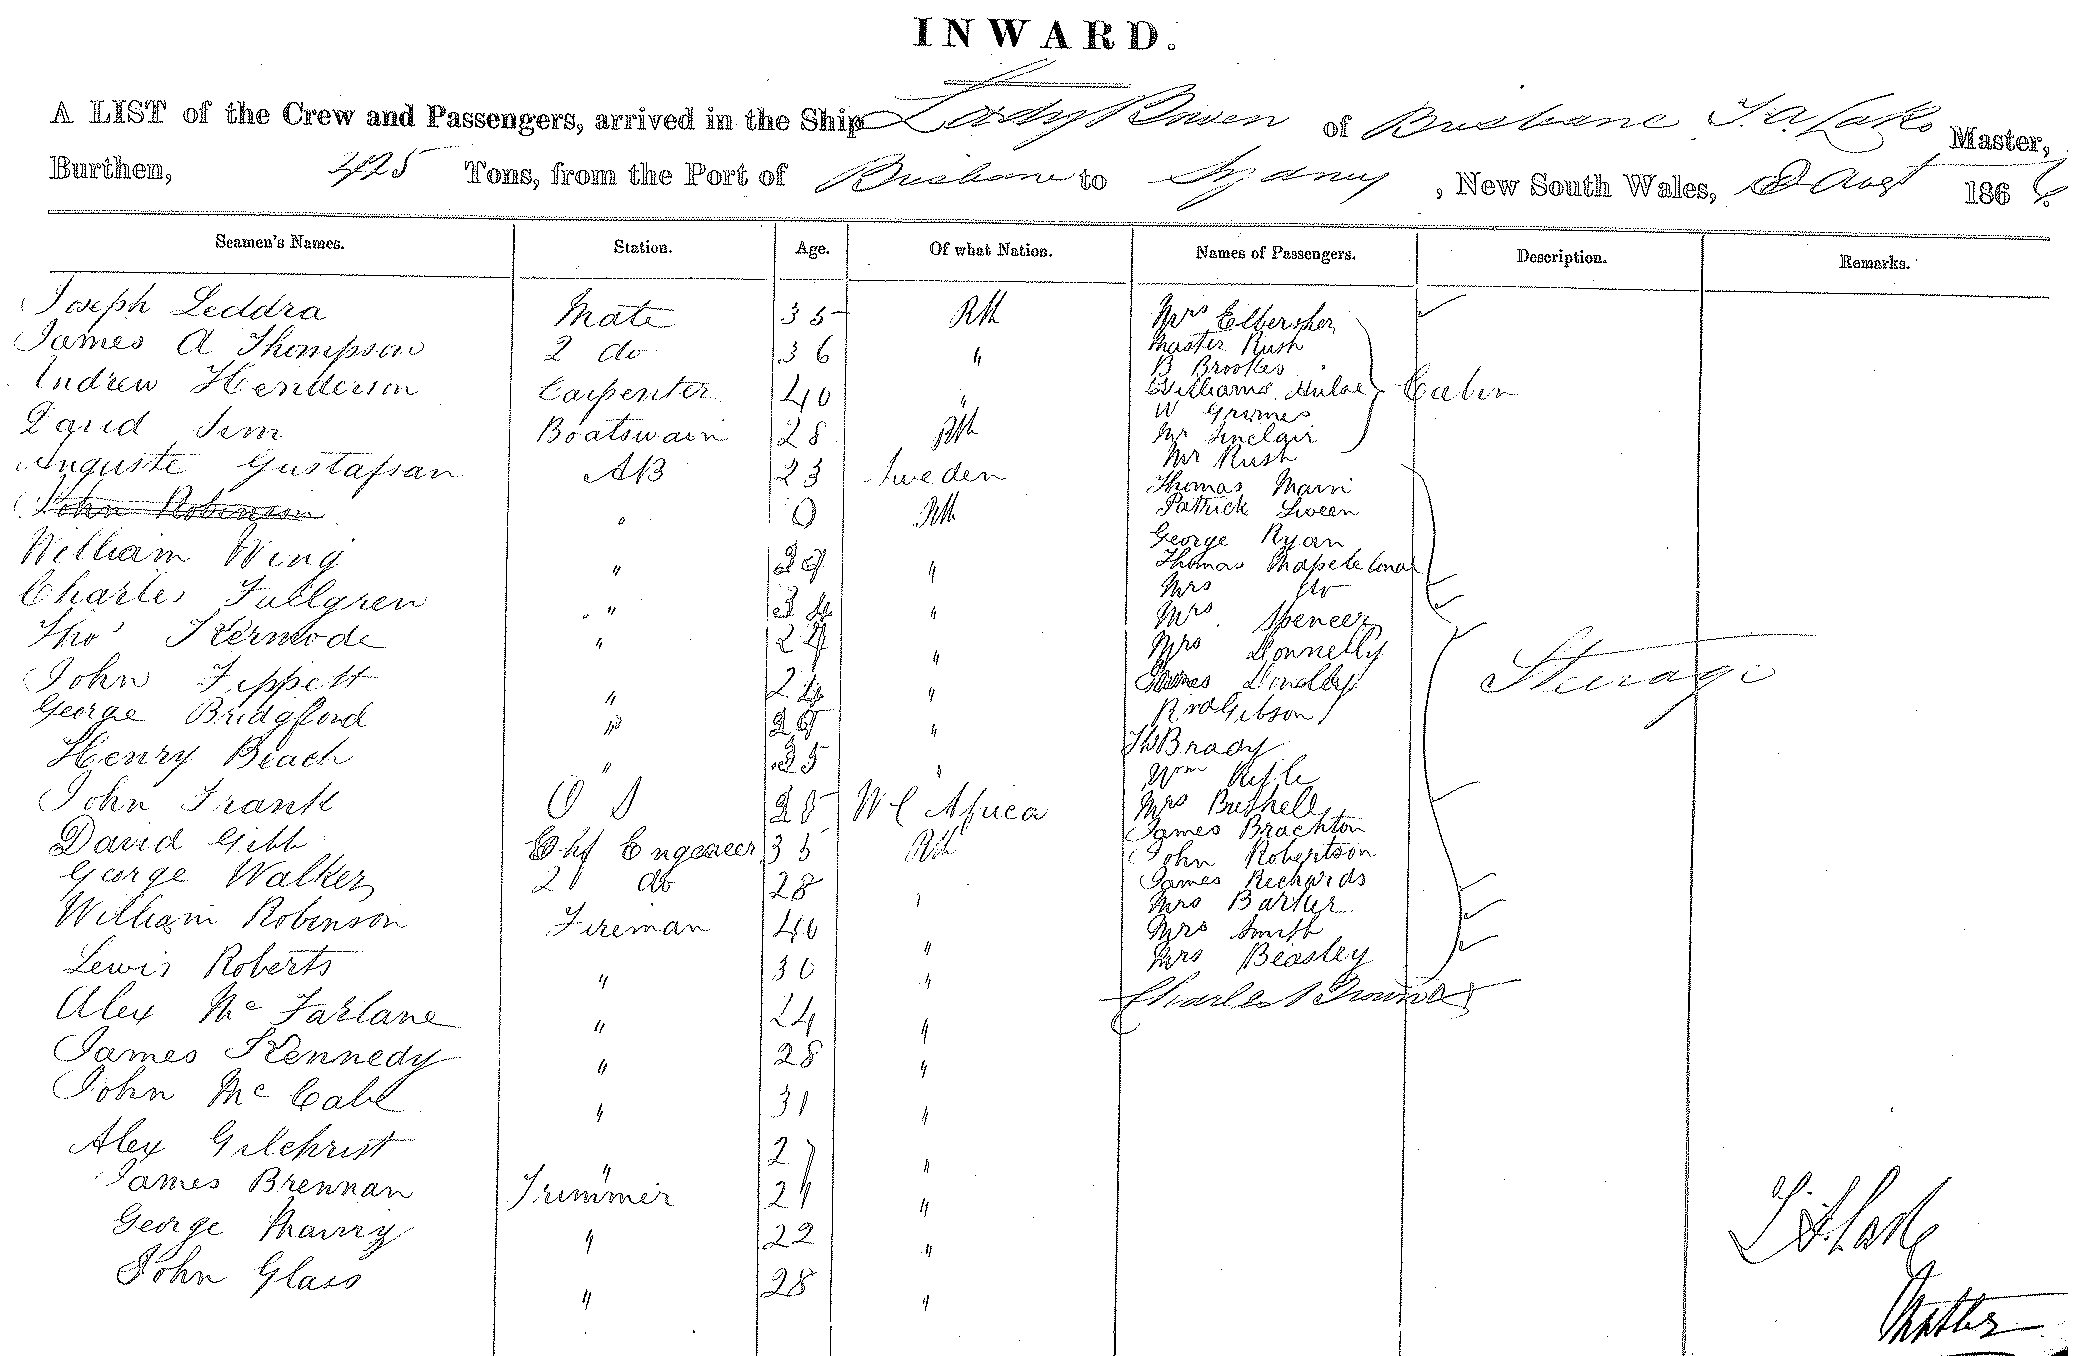 INWARD.
A LIST of the Crew and Passengers, arrived in the Ship Lady Bowen of Brisbane T. A. Lake Master,
Burthen, 425 Tons, from the Port of Brisbane to Sydney, New South Wales, 8 Augt 1866
Seamen's Names. Station. Age. Of what Nation. Names of Passengers. Description. Remarks.
Joseph Leddra Mate 35 Mrs
James A Thompson 2 do 36 " Master Rush
Andrew Henderson Carpenter 40 " B Brookes
Williams Cabin
David Sim Boatswain 28 W Grimes
Mr Sinclair
Auguste Gustafson AB 23 Sweden Mr Rush
John Robinson " 0 Thomas
Patrick Sween
William Wing " " George Ryan
Thomas
Charles Fullgren " " Mrs do
Mrs Spencer
Thos Kermode " 24 " Mrs Donnelly
John Tippett " 24 " James Steerage
George Bridgford " " Gibson
Henry Beach " 25 " Brady
Wm
John Frank O S 28 W C Africa Mrs Bushell
David Gibb Chf Engeneer 35 James Brachton
John Robertson
George Walker 2 do 28 " James Richards
William Robinson Fireman 40 " Mrs Barker
Mrs Smith
Lewis Roberts " 30 " Mrs Beasley
Alex McFarlane " 24 " Charles Browne
James Kennedy " 28 "
John McCabe " 31 "
Alex Gilchrist " 27 "
James Brennan Trimmer 21 "
George " 22 "
John Glass " 28 "
T A Lake
Master